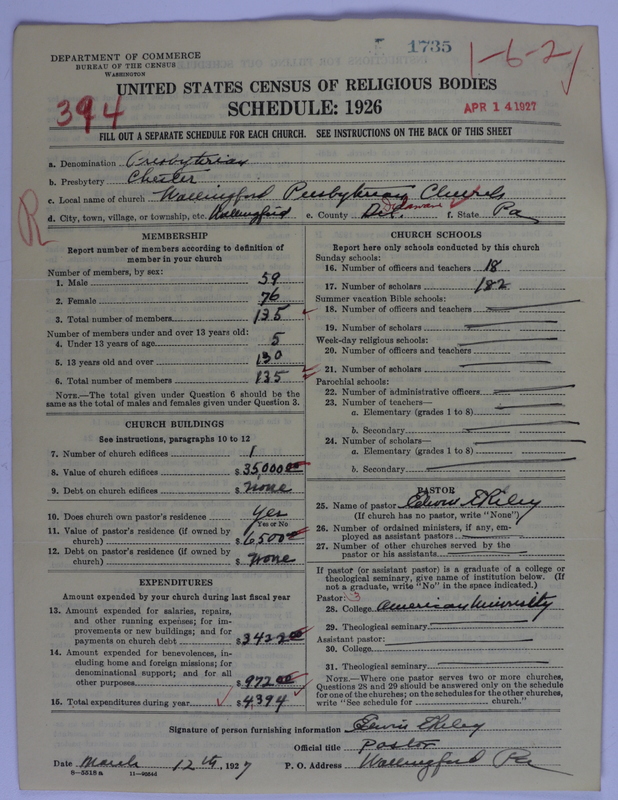 1735
1-6-2
DEPARTMENT OF COMMERCE
BUREAU OF THE CENSUS
WASHINGTON
UNITED STATES CENSUS OF RELIGIOUS BODIES
394
SCHEDULE: 1926
APR 14 1927
FILL OUT A SEPARATE SCHEDULE FOR EACH CHURCH. SEE INSTRUCTIONS ON THE BACK OF THIS SHEET
a. Denomination Presbyterian
b. Presbytery Chester
c. Local name of church Wallingford Presbyterian Church
R
d. City, town, village, or township, etc. Wallingford e. County Del. Delaware f. State Pa
MEMBERSHIP
Report number of members according to definition of
member in your church
Number of members, by sex:
1. Male 59
2. Female 76
3. Total number of members 135
Number of members under and over 13 years old:
4. Under 13 years of age 5
5. 13 years old and over 130
6. Total number of members 135
NOTE.—The total given under Question 6 should be
same as the total of males and females given under Question 3.
CHURCH BUILDINGS
See instructions, paragraphs 10 to 12
7. Number of church edifices 1
8. Value of church edifices $35,000 00
9. Debt on church edifices $ None
10. Does church own pastor's residence Yes
Yes or No
11. Value of pastor's residence (if owned by
church) $6500 00
12. Debt on pastor's residence (if owned by
church) $ None
EXPENDITURES
Amount expended by your church during last fiscal year
13. Amount expended for salaries, repairs,
and other running expenses; for im-
provements or new buildings; and for
payments on church debt $3422 00
14. Amount expended for benevolences, in-
cluding home and foreign missions; for
denominational support; and for all
other purposes $972 00
15. Total expenditures during year $4394
CHURCH SCHOOLS
Report here only schools conducted by this church
Sunday schools:
16. Number of officers and teachers 18
17. Number of scholars 182
Summer vacation Bible schools:
18. Number of officers and teachers
19. Number of scholars
Week-day religious schools:
20. Number of officers and teachers
21. Number of scholars
Parochial schools:
22. Number of administrative officers
23. Number of teachers—
a. Elementary (grades 1 to 8)
b. Secondary
24. Number of scholars—
a. Elementary (grades 1 to 8)
b. Secondary
PASTOR
25. Name of pastor
(If church has no pastor, write "None")
26. Number of ordained ministers, if any, em-
ployed as assistant pastors
27. Number of other churches served by the
pastor or his assistants
If pastor (or assistant pastor) is a graduate of a college or
theological seminary, give name of institution below. (If
not a graduate, write "No" in the space indicated.)
Pastor: 3
28. College American University
29. Theological seminary
Assistant pastor:
30. College
31. Theological seminary
NOTE.—Where one pastor serves two or more churches,
Questions 28 and 29 should be answered only on the schedule
for one of the churches; on the schedules for the other churches,
write "See schedule for church."
Signature of person furnishing information
Official title Pastor
Date March 12th, 1927 P. O. Address Wallingford Pa
8-5518a